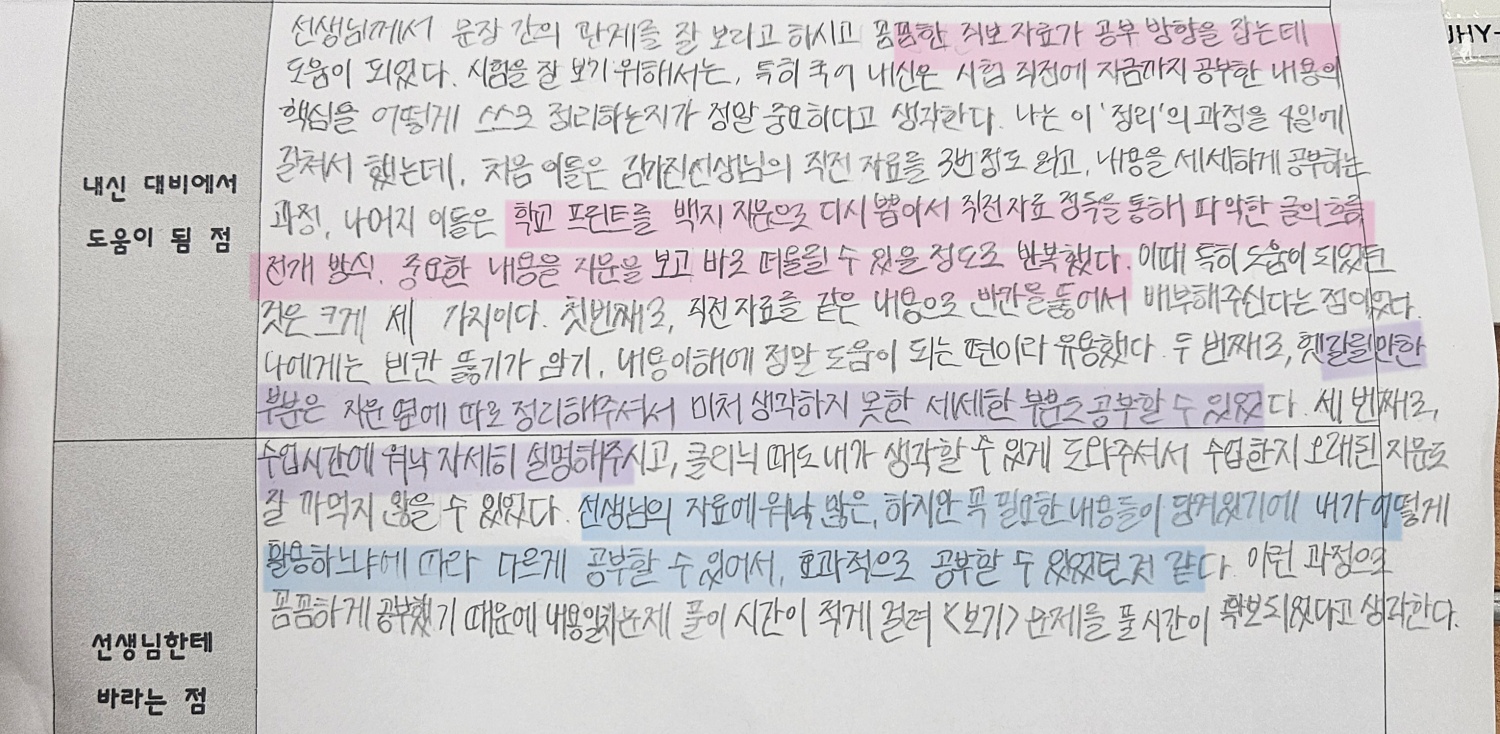 내신 대비에서
도움이 됨 점
선생님께서 문장 간의 관계를 잘 보라고 하시고 꼼꼼한 직보자료가 공부 방향을 잡는데
도움이 되었다. 시험을 잘 보기 위해서는, 특히 국어 내신은 시험 직전에 지금까지 공부한 내용의
핵심을 어떻게 스스로 정리하는지가 정말 중요하다고 생각한다. 나는 이 '정리'의 과정을 4일에
걸쳐서 했는데, 처음 이틀은 선생님의 직전 자료를 3번정도 읽고, 내용을 세세하게 공부하는
과정, 나머지 이틀은 학교 프린트를 백지 지문으로 다시 뽑아서 직전자료 정독을 통해 파악한 글의 흐름
전개 방식, 중요한 내용을 지문을 보고 바로 떠올릴 수 있을 정도로 반복했다. 이때 특히 도움이 되었던
것은 크게 세 가지이다. 첫번째로, 직전자료를 같은 내용으로 빈칸을 뚫어서 배부해주신다는 점이었다.
나에게는 빈칸 뚫기가 암기, 내용이해에 정말 도움이 되는 편이라 유용했다. 두 번째로, 헷갈릴만한
부분은 지문 옆에 따로 정리해주셔서 미처 생각하지 못한 세세한 부분도 공부할 수 있었다. 세 번째로,
수업시간에 워낙 자세히 설명해주시고, 클리닉 때도 내가 생각할 수 있게 도와주셔서 수업한지 오래된 지문도
잘 까먹지 않을 수 있었다. 선생님의 자료에 워낙 많은, 하지만 꼭 필요한 내용들이 담겨있기에 내가 어떻게
활용하느냐에 따라 다르게 공부할 수 있어서, 효과적으로 공부할 수 있었던 것 같다. 이런 과정으로
꼼꼼하게 공부했기 때문에 내용일치문제 풀이 시간이 적게 걸려 <보기> 문제를 풀 시간이 확보되었다고 생각한다.
선생님한테
바라는 점